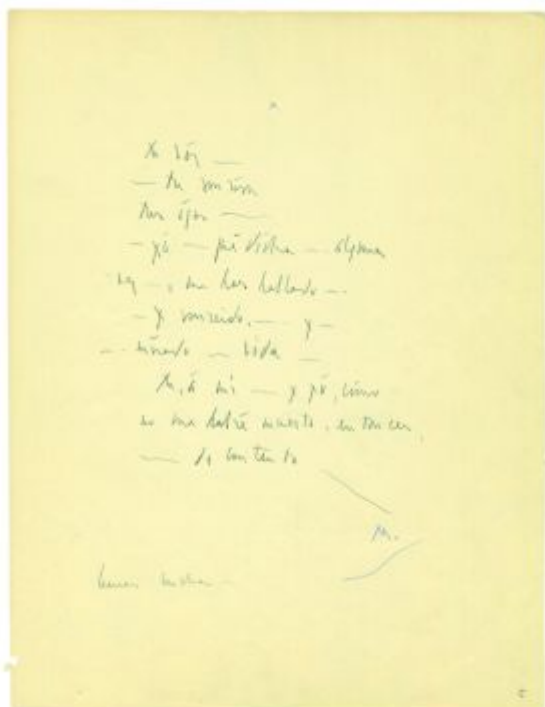 tu vóz —
— tu sonrisa
tus ójos —
— yó — qué dicha — alguna
vez —, me has hablado —
— y sonreído, — y —
— mirado — vida —
tu, á mi — y yó, cómo
no me habré muerto, entonces,
— de contento
M.
buenas noches —